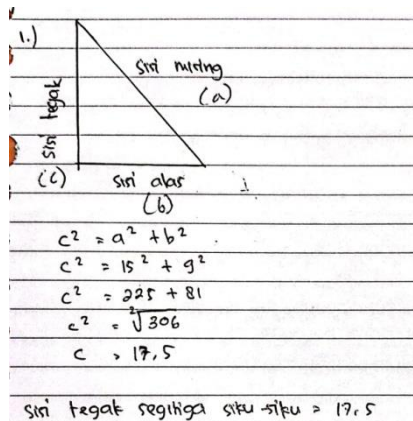 1.)
sisi miring
(a)
sisi tegak
(c)
sisi alas
(b)
c² = a² + b²
c² = 15² + 9²
c² = 225 + 81
c² = ²√306
c = 17,5
sisi tegak segitiga siku-siku = 17,5